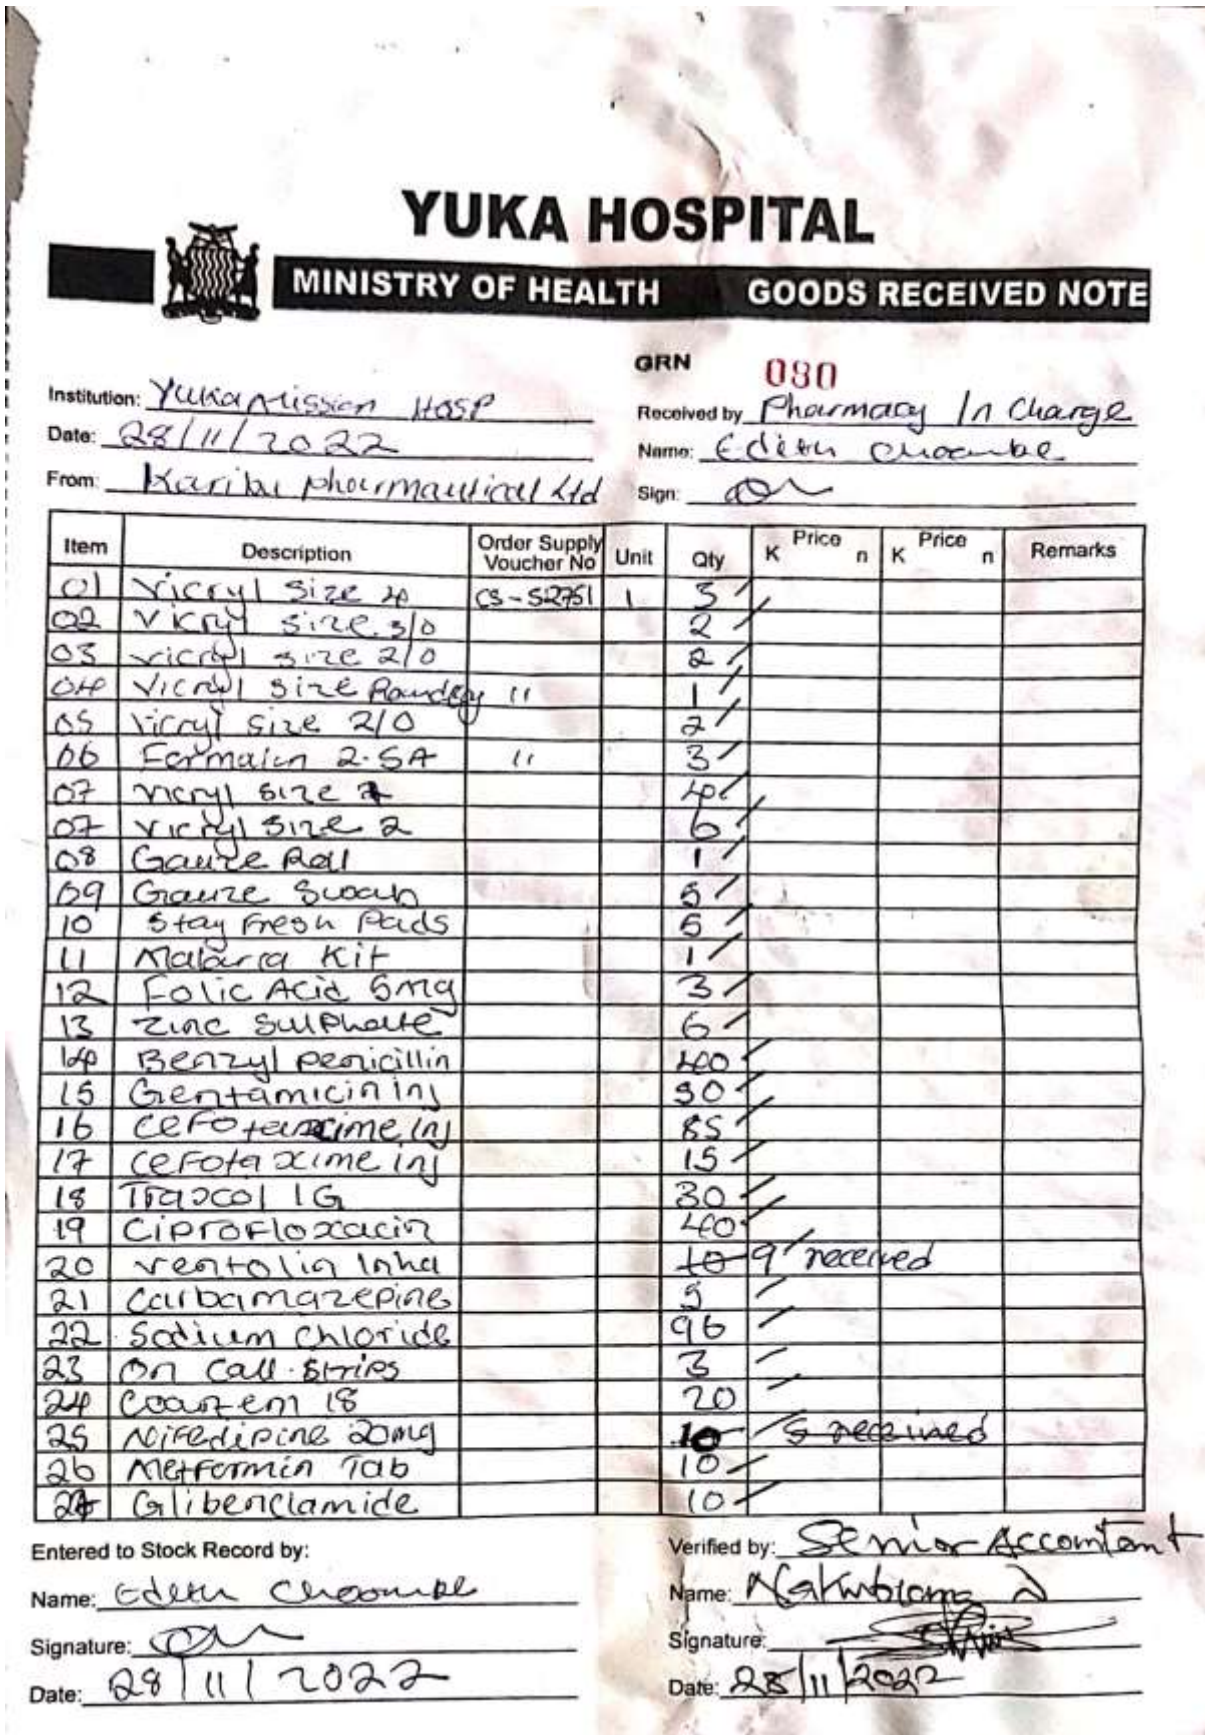 YUKA HOSPITAL
MINISTRY OF HEALTH GOODS RECEIVED NOTE
GRN 080
Institution: Yuka Mission Hosp
Received by Pharmacy In Charge
Date: 28/11/2022
Name: Edith Choombe
From: Karibu pharmautical Ltd
Sign:
Item Description Order Supply Voucher No Unit Qty Price K n Price K n Remarks
01 Vicryl Size 4 CS-S2751 1 5
02 Vicryl size 3/0 2
03 vicryl size 2/0 2
04 Vicryl size 11 1
05 Vicryl size 2/0 2
06 Formalin 2.5A 11 3
07 vicryl size 4
07 vicryl size 2 6
08 Gauze Roll 1
09 Gauze Swab 5
10 Stay Fresh Pads 5
11 Malaria Kit 1
12 Folic Acid 5mg 3
13 Zinc Sulphate 6
14 Benzyl penicillin 40
15 Gentamicin inj 50
16 Cefotaxime inj 85
17 Cefotaxime inj 15
18 Traxcol 1G 30
19 Ciprofloxacin 40
20 ventolin Inha 10 9 received
21 Carbamazepine 5
22 Sodium Chloride 96
23 On Call Strips 3
24 Coartem 18 20
25 Nifedipine 20mg 10 5 received
26 Metformin Tab 10
27 Glibenclamide 10
Entered to Stock Record by:
Verified by: Senior Accountant
Name: Edith Choombe
Name:
Signature:
Signature:
Date: 28/11/2022
Date: 28/11/2022